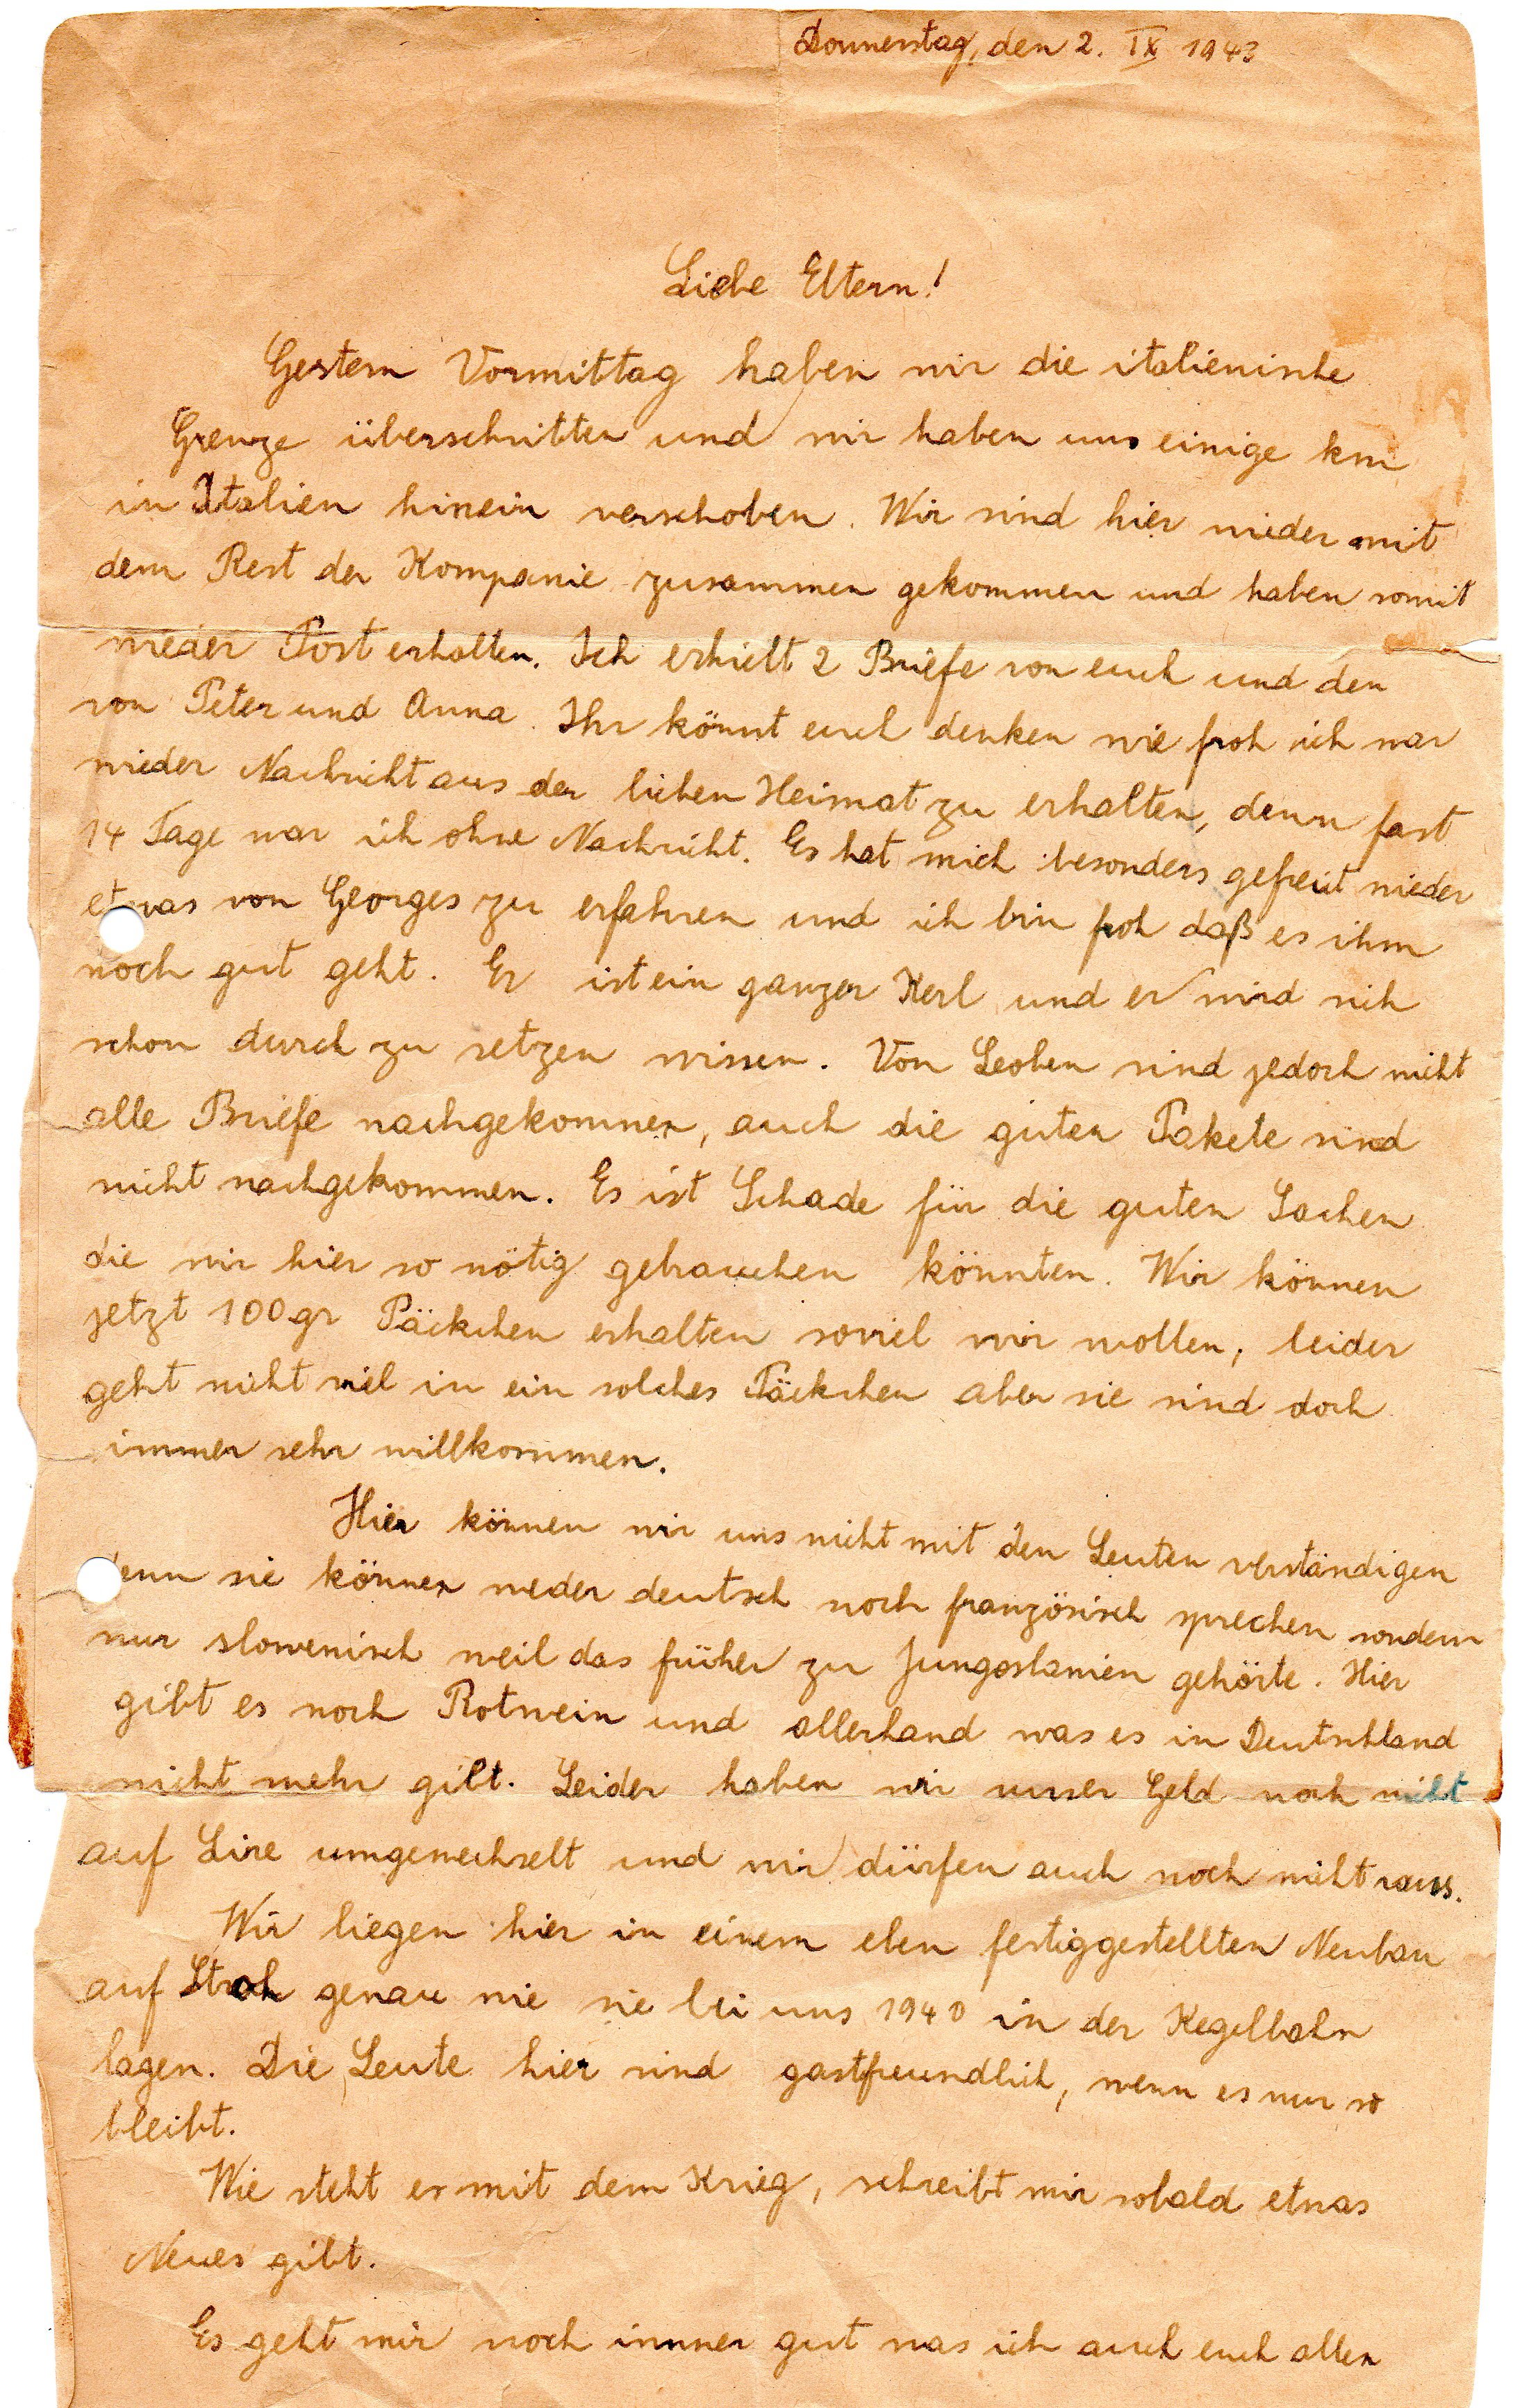 Donnerstag, den 2. IX 1943
Liebe Eltern!
Gestern Vormittag haben wir die italienische
Grenze überschritten und wir haben uns einige km
in Italien hinein verschoben. Wir sind hier wieder mit
dem Rest der Kompanie zusammen gekommen und haben somit
wieder Post erhalten. Ich erhielt 2 Briefe von euch und den
von Peter und Anna. Ihr könnt euch denken wie froh ich war
wieder Nachricht aus der lieben Heimat zu erhalten, denn fast
14 Tage war ich ohne Nachricht. Es hat mich besonders gefreut wieder
etwas von Georges zu erfahren und ich bin froh daß es ihm
noch gut geht. Er ist ein ganzer Kerl und er wird sich
schon durch zu setzen wissen. Von Leoben sind jedoch nicht
alle Briefe nachgekommen, auch die guten Pakete sind
nicht nachgekommen. Es ist Schade für die guten Sachen
die wir hier so nötig gebrauchen könnten. Wir können
jetzt 100 gr Päckchen erhalten soviel wir wollen, leider
geht nicht viel in ein solches Päckchen aber sie sind doch
immer sehr willkommen.
Hier können wir uns nicht mit den Leuten verständigen
denn sie können weder deutsch noch französisch sprechen sondern
nur slowenisch weil das früher zu Jungoslawien gehörte. Hier
gibt es noch Rotwein und allerhand was es in Deutschland
nicht mehr gibt. Leider haben wir unser Geld noch nicht
auf Lire umgewechselt und wir dürfen auch noch nicht raus.
Wir liegen hier in einem eben fertiggestellten Neubau
auf Stroh genau wie sie bei uns 1940 in der Kegelbahn
lagen. Die Leute hier sind gastfreundlich, wenn es nur so
bleibt.
Wie steht es mit dem Krieg, schreibt mir sobald etwas
Neues gibt.
Es geht mir noch immer gut was ich auch euch allen